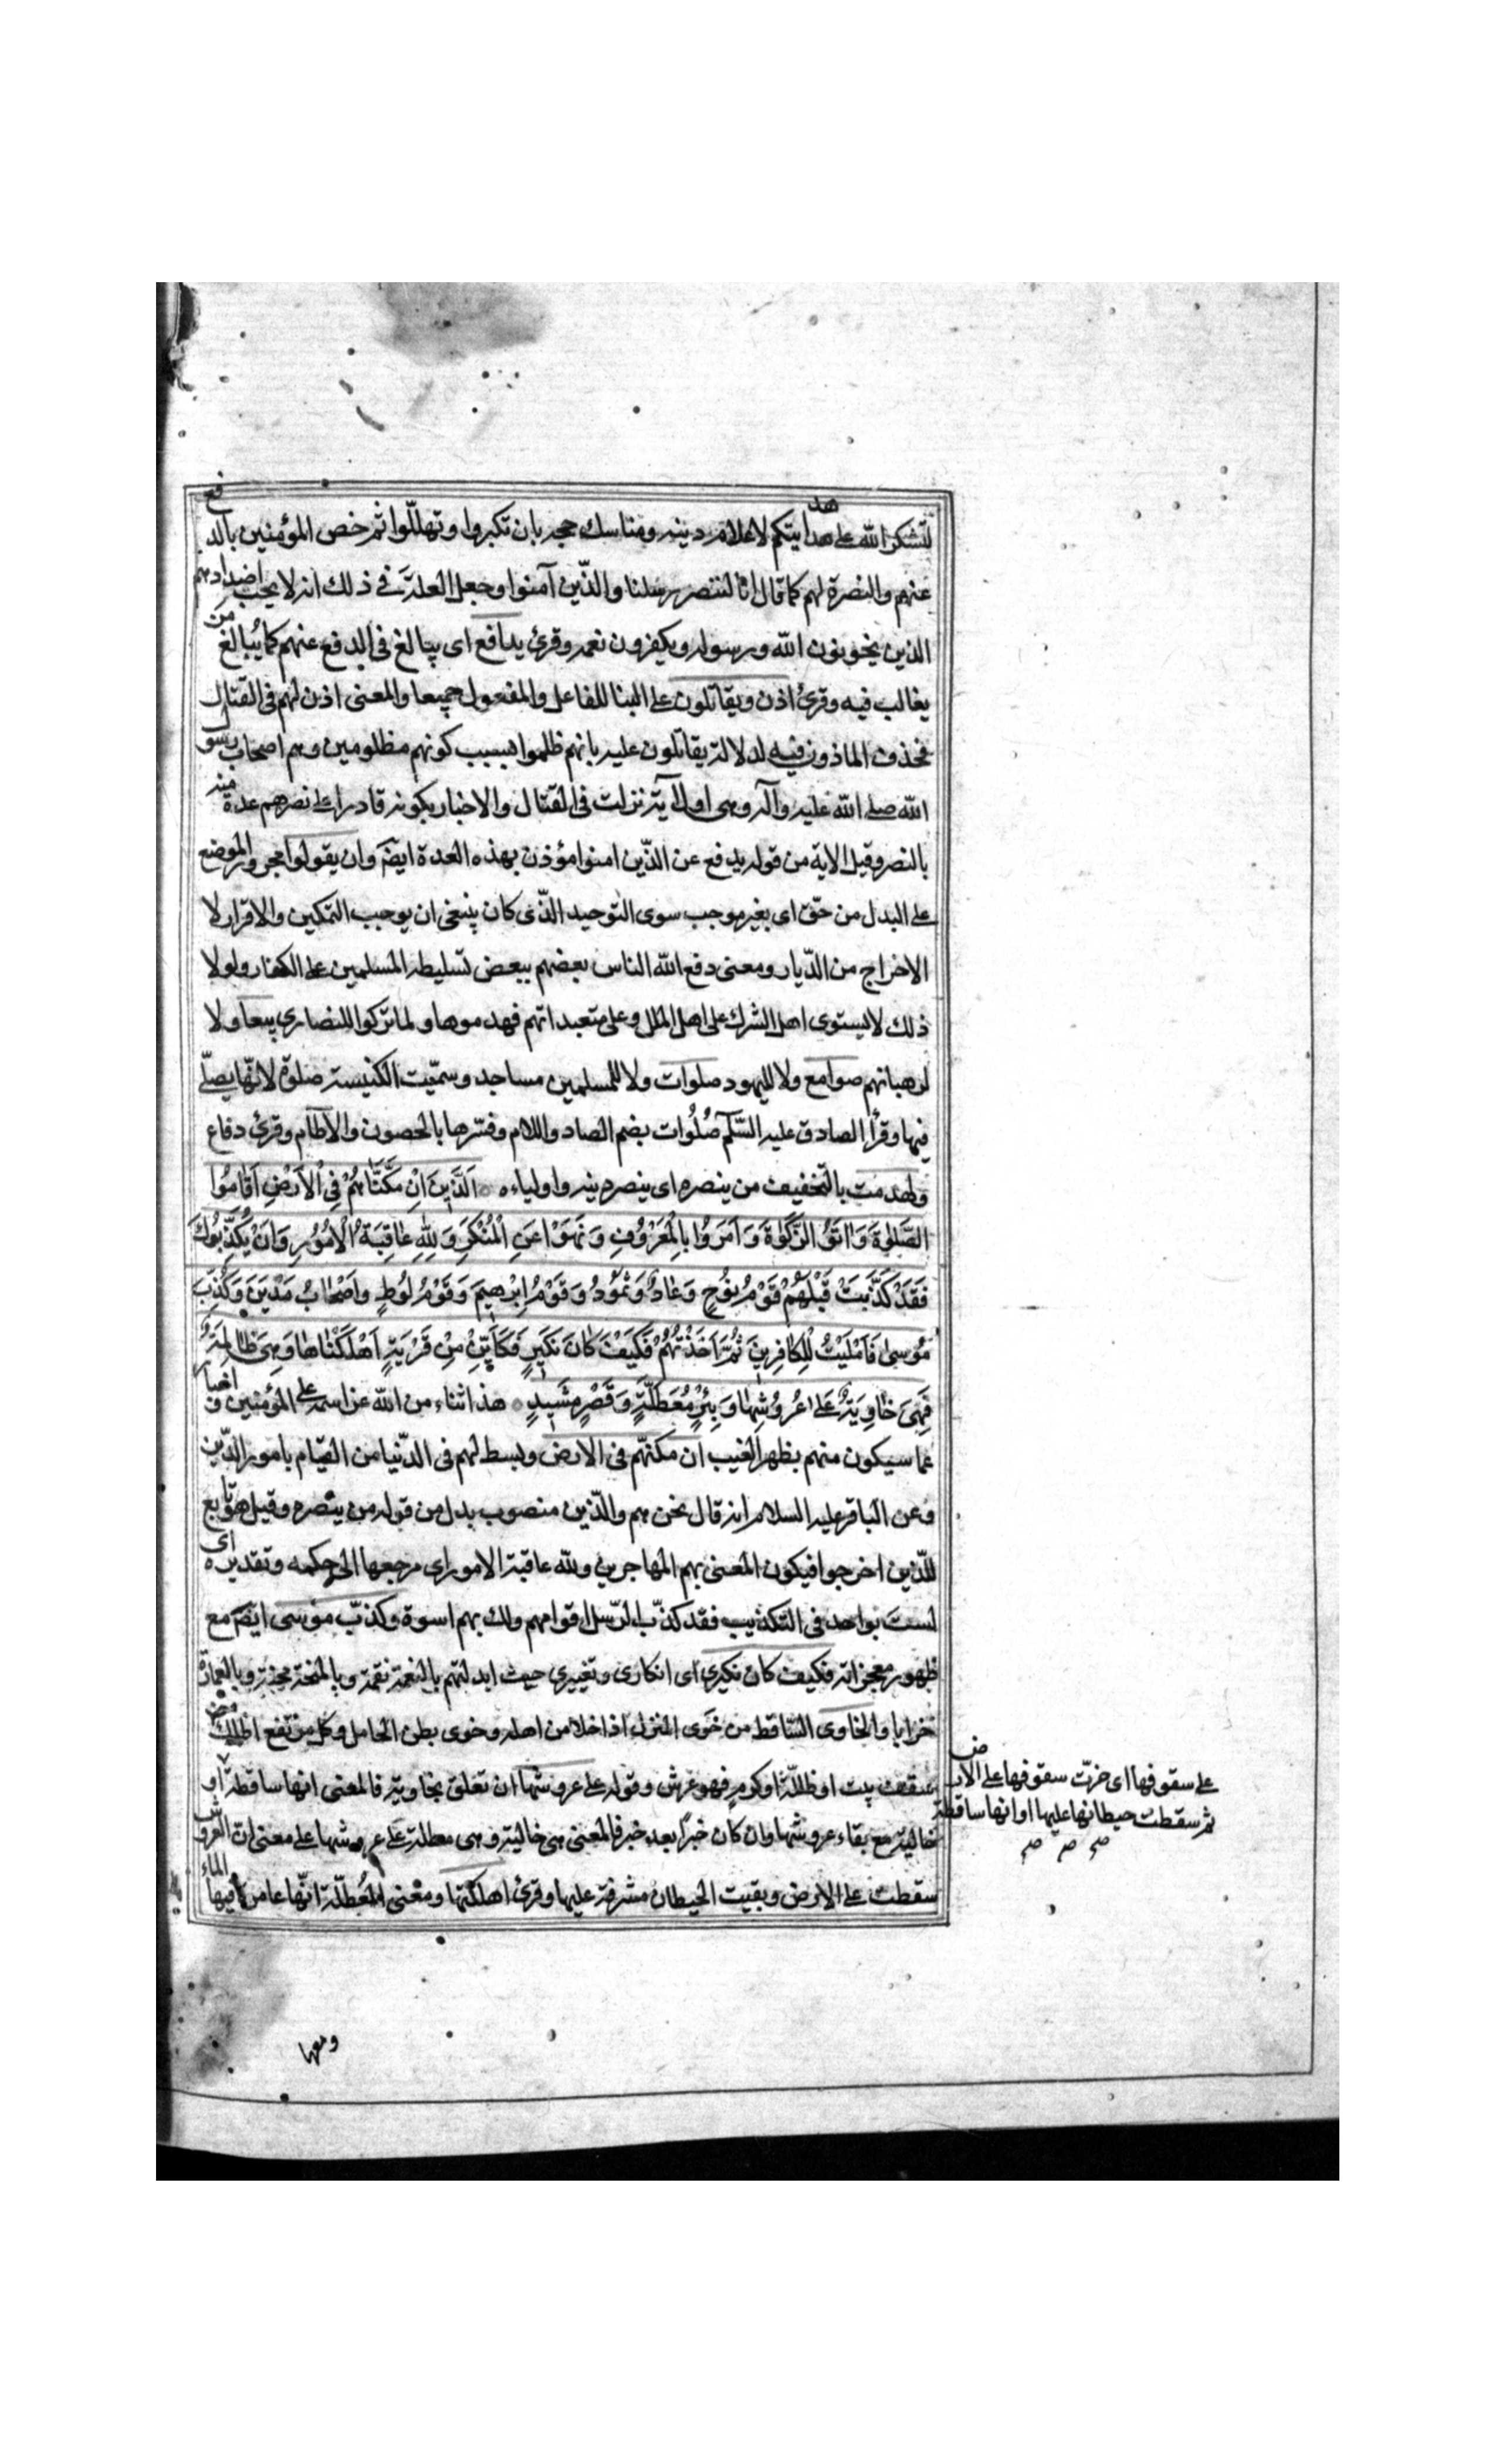 لتشكر الله على هدايتكم لاعلام دينه ومناسك حجه بان تكبروا وتهللّوا ثم خص المؤمنين بالدفع
عنهم والنصرة لهم كما قال انا لننصر رسلنا والذّين آمنوا وجعل العلة فى ذلك انه لا يحب اضدادهم
الذين يخونون الله ورسوله ويكفرون نعمه وقرئ يدافع اى يبالغ فى الدفع عنهم كما يُبالغ من
يغالب فيه وقرئ اذن ويقاتلون على البنا للفاعل والمفعول جميعا والمعنى اذن لهم فى القتال
فحذف الماذون فيه لدلالة يقاتلون عليه بانهم ظلموا بسبب كونهم مظلومين وهم اصحاب رسول
الله صلى الله عليه وآله وهى اول آية نزلت فى القتال والاخبار بكونه قادرا على نصرهم عدة منه
بالنصر وقيل الاية من قوله يدفع عن الذّين امنوا مؤذن بهذه العدة ايضا وان يقولوا مجرور الموضع
على البدل من حقّ اى بغير موجب سوى التوحيد الذّى كان ينبغى ان يوجب التمكين والاقرار لا
الاخراج من الدّيار ومعنى دفع الله الناس بعضهم ببعض تسليطه المسلمين على الكفار ولولا
ذلك لاستوى اهل الشرك على اهل الملل وعلى متعبداتهم فهدموها ولما تركوا للنصارى بيعا ولا
لرهبانهم صوامع ولا لليهود صلوات ولا للمسلمين مساجد وسمّيت الكنيسة صلوة لانّها يصلّى
فيها وقرأ الصادق عليه السّلم صُلُوات بضم الصاد واللام وفسّرها بالحصون والآطام وقرئ دفاع
ولهدمت بالتخفيف من ينصره اى ينصر دينه واولياءه اَلَّذَينَ اِنْ مَكَّنّاهُمْ فِى الْاَرْضِ اَقامُوا
الصَّلوةَ وَاتَوُا الزَّكوةَ وَاَمَرَوُا بِالْمَعْرُوفِ وَنَهَوْا عَنِ الْمُنْكَرِ وَلِلّهِ عاقِبَةُ الْاُمُورِ وَاِنْ يُكَذِّبُوكَ
فَقَدْ كَذَّبَتْ قَبْلَهُمْ قَوْمُ نُوحٍ وَعادٌ وَثَمُودُ وَقَوْمُ اِبْرهيمَ وَقَوْمُ لُوطٍ واَصْحابُ مَدْيَنَ وَكُذِّبَ
مُوسى فَاَمْلَيْتُ لِلْكافِرينَ ثُمَّ اَخَذْتُهُمْ فَكَيْفَ كانَ نَكيرِ فَكَاَيِّنْ مِنْ قَرْيَةٍ اَهْلَكْناها وَهِىَ ظالِمَةٌ
فَهِىَ خاوِيَةٌ عَلى عُرُوشِها وَبِئْرٍ مُعَطَّلَةٍ وَقَصْرٍ مَشيدٍ هذا ثناء من الله عز اسمه على المؤمنين و اخبار
عما سيكون منهم بظهر الغيب ان مكنّهم فى الارض وبسط لهم فى الدّنيا من القيام بامور الدّين
وعن الباقر عليه السلام انه قال نحن هم والذّين منصوب بدل من قوله من ينصره وقيل هو تابع
للذّين اخرجوا فيكون المعنى بهم المهاجرين ولله عاقبة الامور اى مرجعها الى حكمه وتقديره اى
لست بواحد فى التكذيب فقد كذّب الرّسل اقوامهم ولك بهم اسوة وكذب موسى ايضا مع
ظهور معجزاته فكيف كان نكيرى اى انكارى وتغييرى حيث ابدلتهم بالنعمة نقمة وبالمنحة محنة وبالعمارة
خرابا والخاوى السّاقط من خَوى المنزل اذا خلا من اهله وخوى بطن الحامل وكل مرتفع اظلك من
سقف بيت او ظلّة او كرمٍ فهو عرش وقوله على عروشها ان تعلق بخاوية فالمعنى انها ساقطة او
خالية مع بقاء عروشها وان كان خبراً بعد خبر فالمعنى هى خالية وهى مطلة على عروشها على معنى ان العروش
سقطت على الارض وبقيت الحيطان مشرفة عليها وقرئ اهلكتها ومعنى المُعطّلة انّها عامرة فيها الماء
على سقوفها اى خرّت سقوفها على الارض
ثم سقطت حيطانها عليها او انها ساقطة
صح صح صح
ومعها